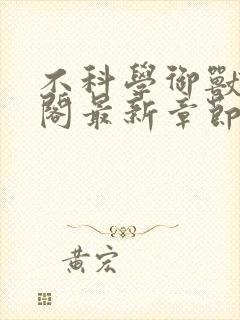 不科學御獸
閣最新章節
黃宏